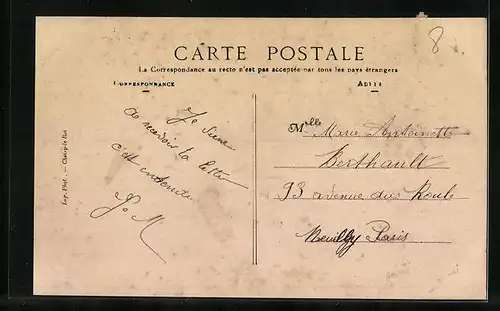 8
CARTE POSTALE
La Correspondance au recto n'est pas acceptée par tous les pays étrangers
CORRESPONDANCE
Je
de recevoir ta lettre
c'est entendu
Melle Marie Antoinette
Berthault
93 avenue du Roule
Neuilly Paris